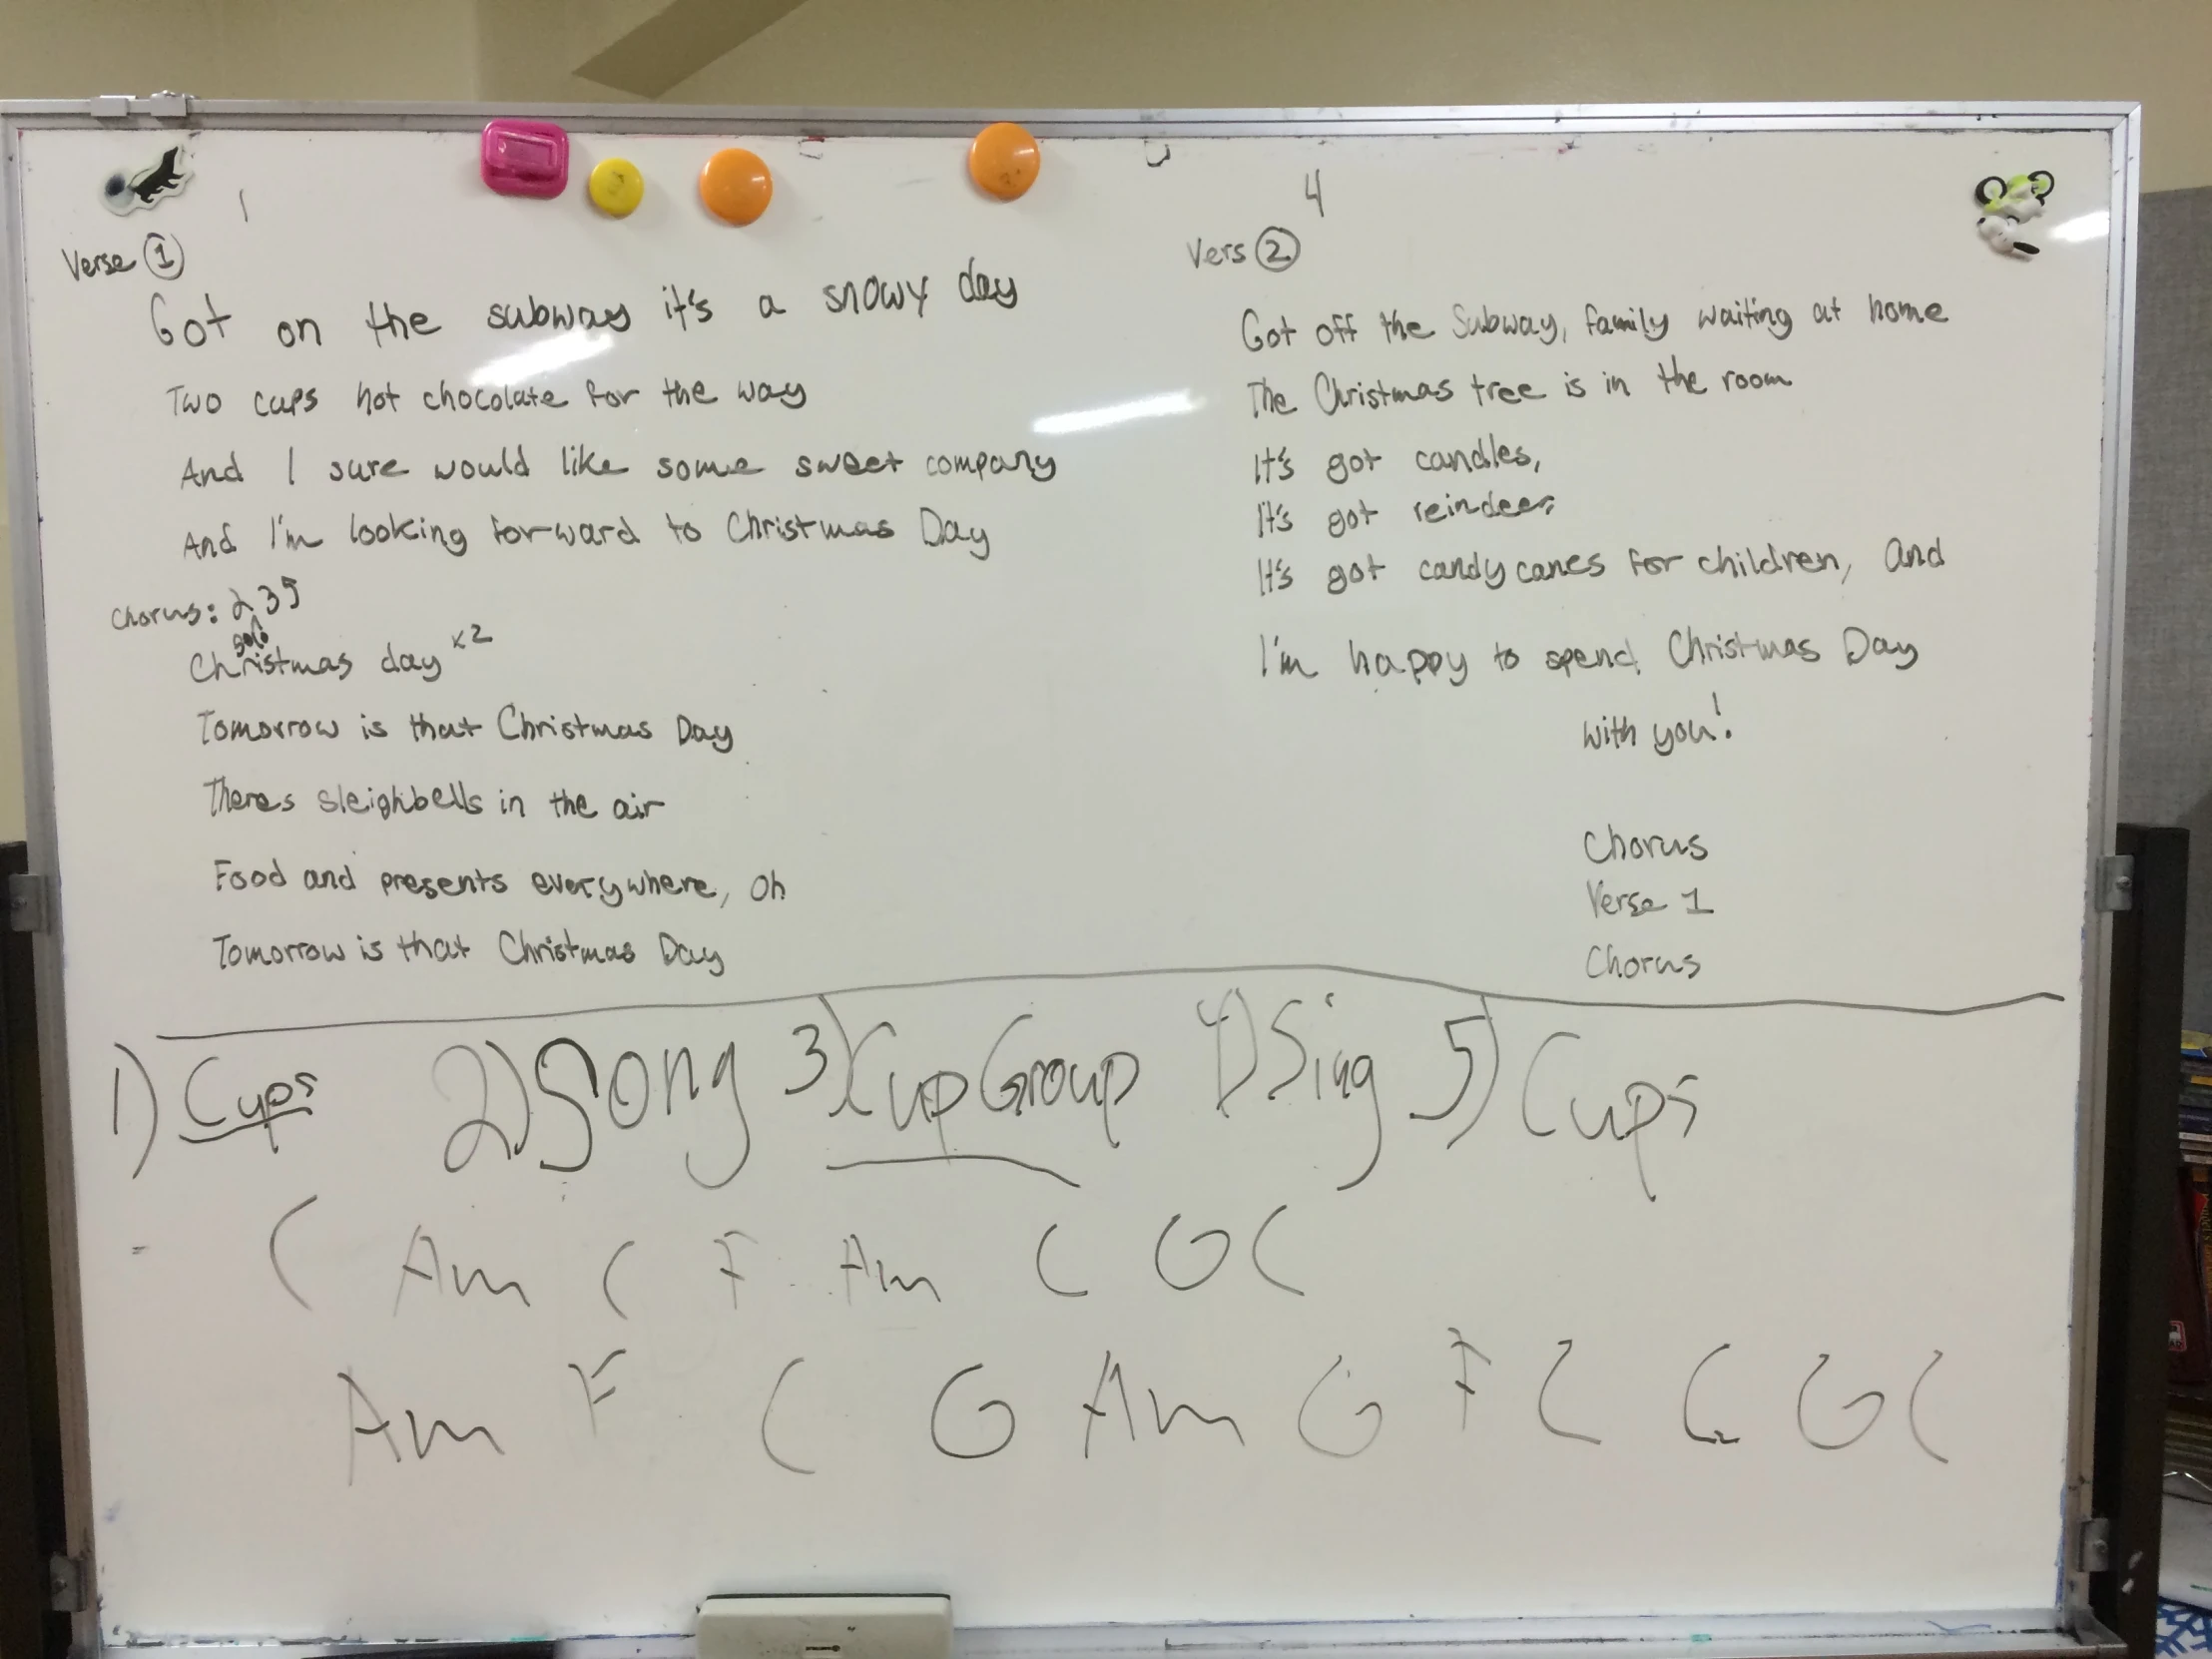 1
Verse ①
Got on the subway it's a snowy day
Two cups hot chocolate for the way
And I sure would like some sweet company
And I'm looking forward to Christmas Day
Chorus: 2 3 5
solo
Christmas day x2
Tomorrow is that Christmas Day
Theres sleighbells in the air
Food and presents everywhere, Oh
Tomorrow is that Christmas Day
4
Vers ②
Got off the Subway, family waiting at home
The Christmas tree is in the room
It's got candles,
It's got reindeer,
It's got candy canes for children, and
I'm happy to spend Christmas Day
with you!
Chorus
Verse 1
Chorus
1) Cups 2) Song 3) Cup Group 4) Sing 5) Cups
C Am C F Am C G C
Am F C G Am G F C C G C